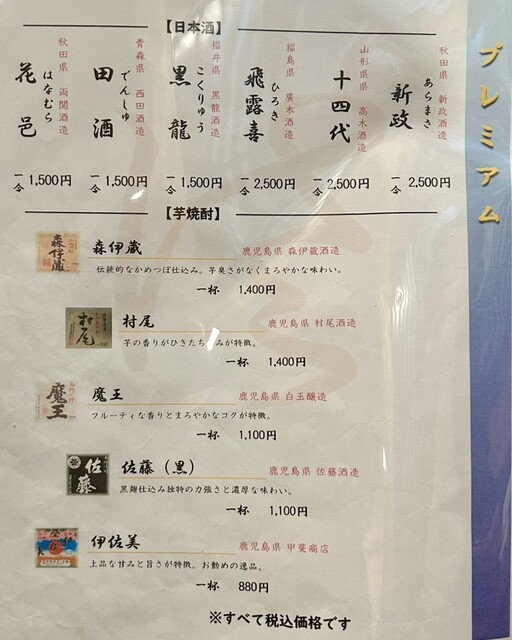 プレミアム
【日本酒】
秋田県 新政酒造
あらまさ
新政
一合 2,500円
山形県 高木酒造
十四代
一合 2,500円
福島県 廣木酒造
ひろき
飛露喜
一合 2,500円
福井県 黒龍酒造
こくりゅう
黒龍
一合 1,500円
青森県 西田酒造
でんしゅ
田酒
一合 1,500円
秋田県 両関酒造
はなむら
花邑
一合 1,500円
【芋焼酎】
森伊蔵
鹿児島県 森伊蔵酒造
伝統的なかめつぼ仕込み。芋臭さがなくまろやかな味わい。
一杯 1,400円
村尾
鹿児島県 村尾酒造
芋の香りがひきたち みが特徴。
一杯 1,400円
魔王
鹿児島県 白玉醸造
フルーティな香りとまろやかなコクが特徴。
一杯 1,100円
佐藤(黒)
鹿児島県 佐藤酒造
黒麹仕込み独特の力強さと濃厚な味わい。
一杯 1,100円
伊佐美
鹿児島県 甲斐商店
上品な甘みと旨さが特徴。お勧めの逸品。
一杯 880円
※すべて税込価格です